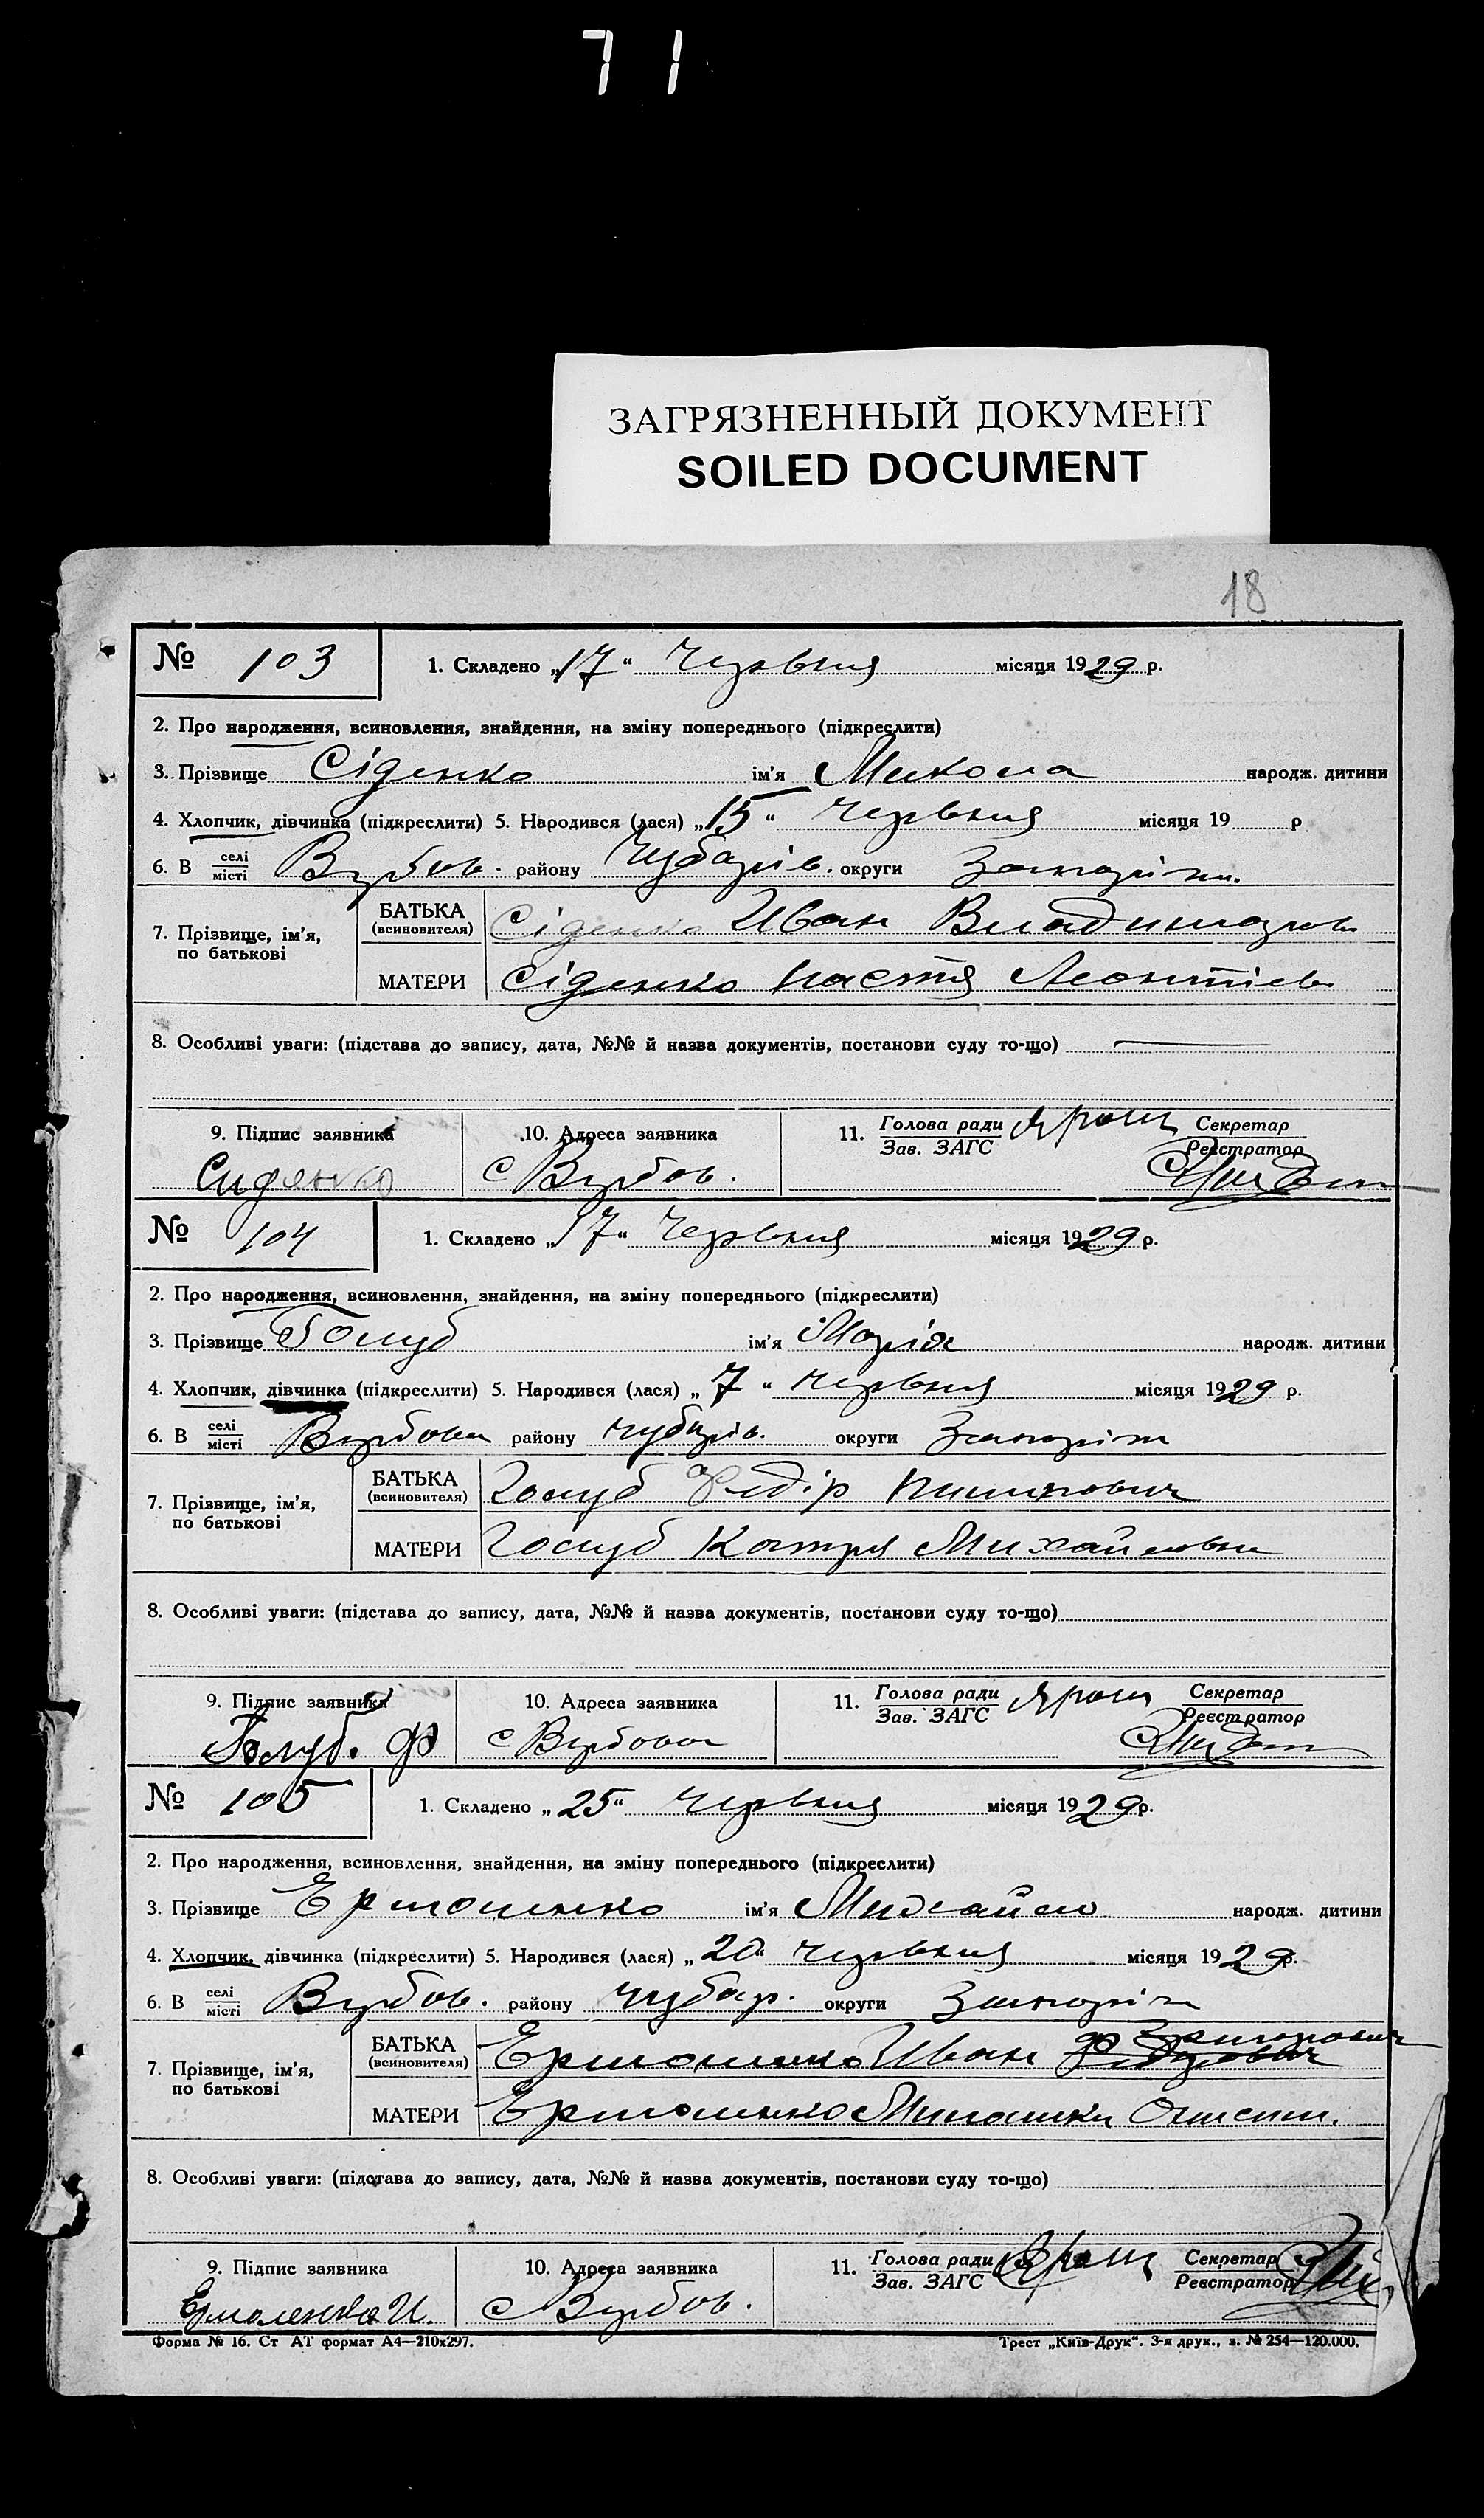 71
ЗАГРЯЗНЕННЫЙ ДОКУМЕНТ
SOILED DOCUMENT
18
№ 103 1. Складено „17“ Червня місяця 1929 р.
2. Про народження, всиновлення, знайдення, на зміну попереднього (підкреслити)
3. Прізвище Сіденко ім'я Микола народж. дитини
4. Хлопчик, дівчинка (підкреслити) 5. Народився (лася) „15“ червня місяця 19 р
6. В селі місті Вербов. району Чубарів. округи Запоріж.
7. Прізвище, ім'я, по батькові
БАТЬКА (всиновителя) Сіденко Иван
МАТЕРИ Сіденко Настя Леонтіев.
8. Особливі уваги: (підстава до запису, дата, №№ й назва документів, постанови суду то-що)
9. Підпис заявника 10. Адреса заявника 11. Голова ради Зав. ЗАГС Секретар Реєстратор
Сиденко с Вербов.
№ 104 1. Складено „17“ Червня місяця 1929 р.
2. Про народження, всиновлення, знайдення, на зміну попереднього (підкреслити)
3. Прізвище Голуб ім'я Марія народж. дитини
4. Хлопчик, дівчинка (підкреслити) 5. Народився (лася) „7“ червня місяця 1929 р.
6. В селі місті Вербова району чубарів. округи Запоріж
7. Прізвище, ім'я, по батькові
БАТЬКА (всиновителя) Голуб Федір Пилипович
МАТЕРИ Голуб Катря Михайловна
8. Особливі уваги: (підстава до запису, дата, №№ й назва документів, постанови суду то-що)
9. Підпис заявника 10. Адреса заявника 11. Голова ради Зав. ЗАГС Секретар Реєстратор
Голуб. Ф с Вербова
№ 105 1. Складено „25“ червня місяця 1929 р.
2. Про народження, всиновлення, знайдення, на зміну попереднього (підкреслити)
3. Прізвище Ермоленко ім'я Михайло народж. дитини
4. Хлопчик, дівчинка (підкреслити) 5. Народився (лася) „20“ червня місяця 1929 р.
6. В селі місті Вербов. району чубар. округи Запоріж
7. Прізвище, ім'я, по батькові
БАТЬКА (всиновителя) Ермоленко Иван Григорович
МАТЕРИ Ермоленко
8. Особливі уваги: (підстава до запису, дата, №№ й назва документів, постанови суду то-що)
9. Підпис заявника 10. Адреса заявника 11. Голова ради Зав. ЗАГС Секретар Реєстратор
Ермоленко И. с Вербов.
Форма № 16. Ст АТ формат А4—210х297. Трест „Київ-Друк“. 3-я друк., з. № 254—120.000.